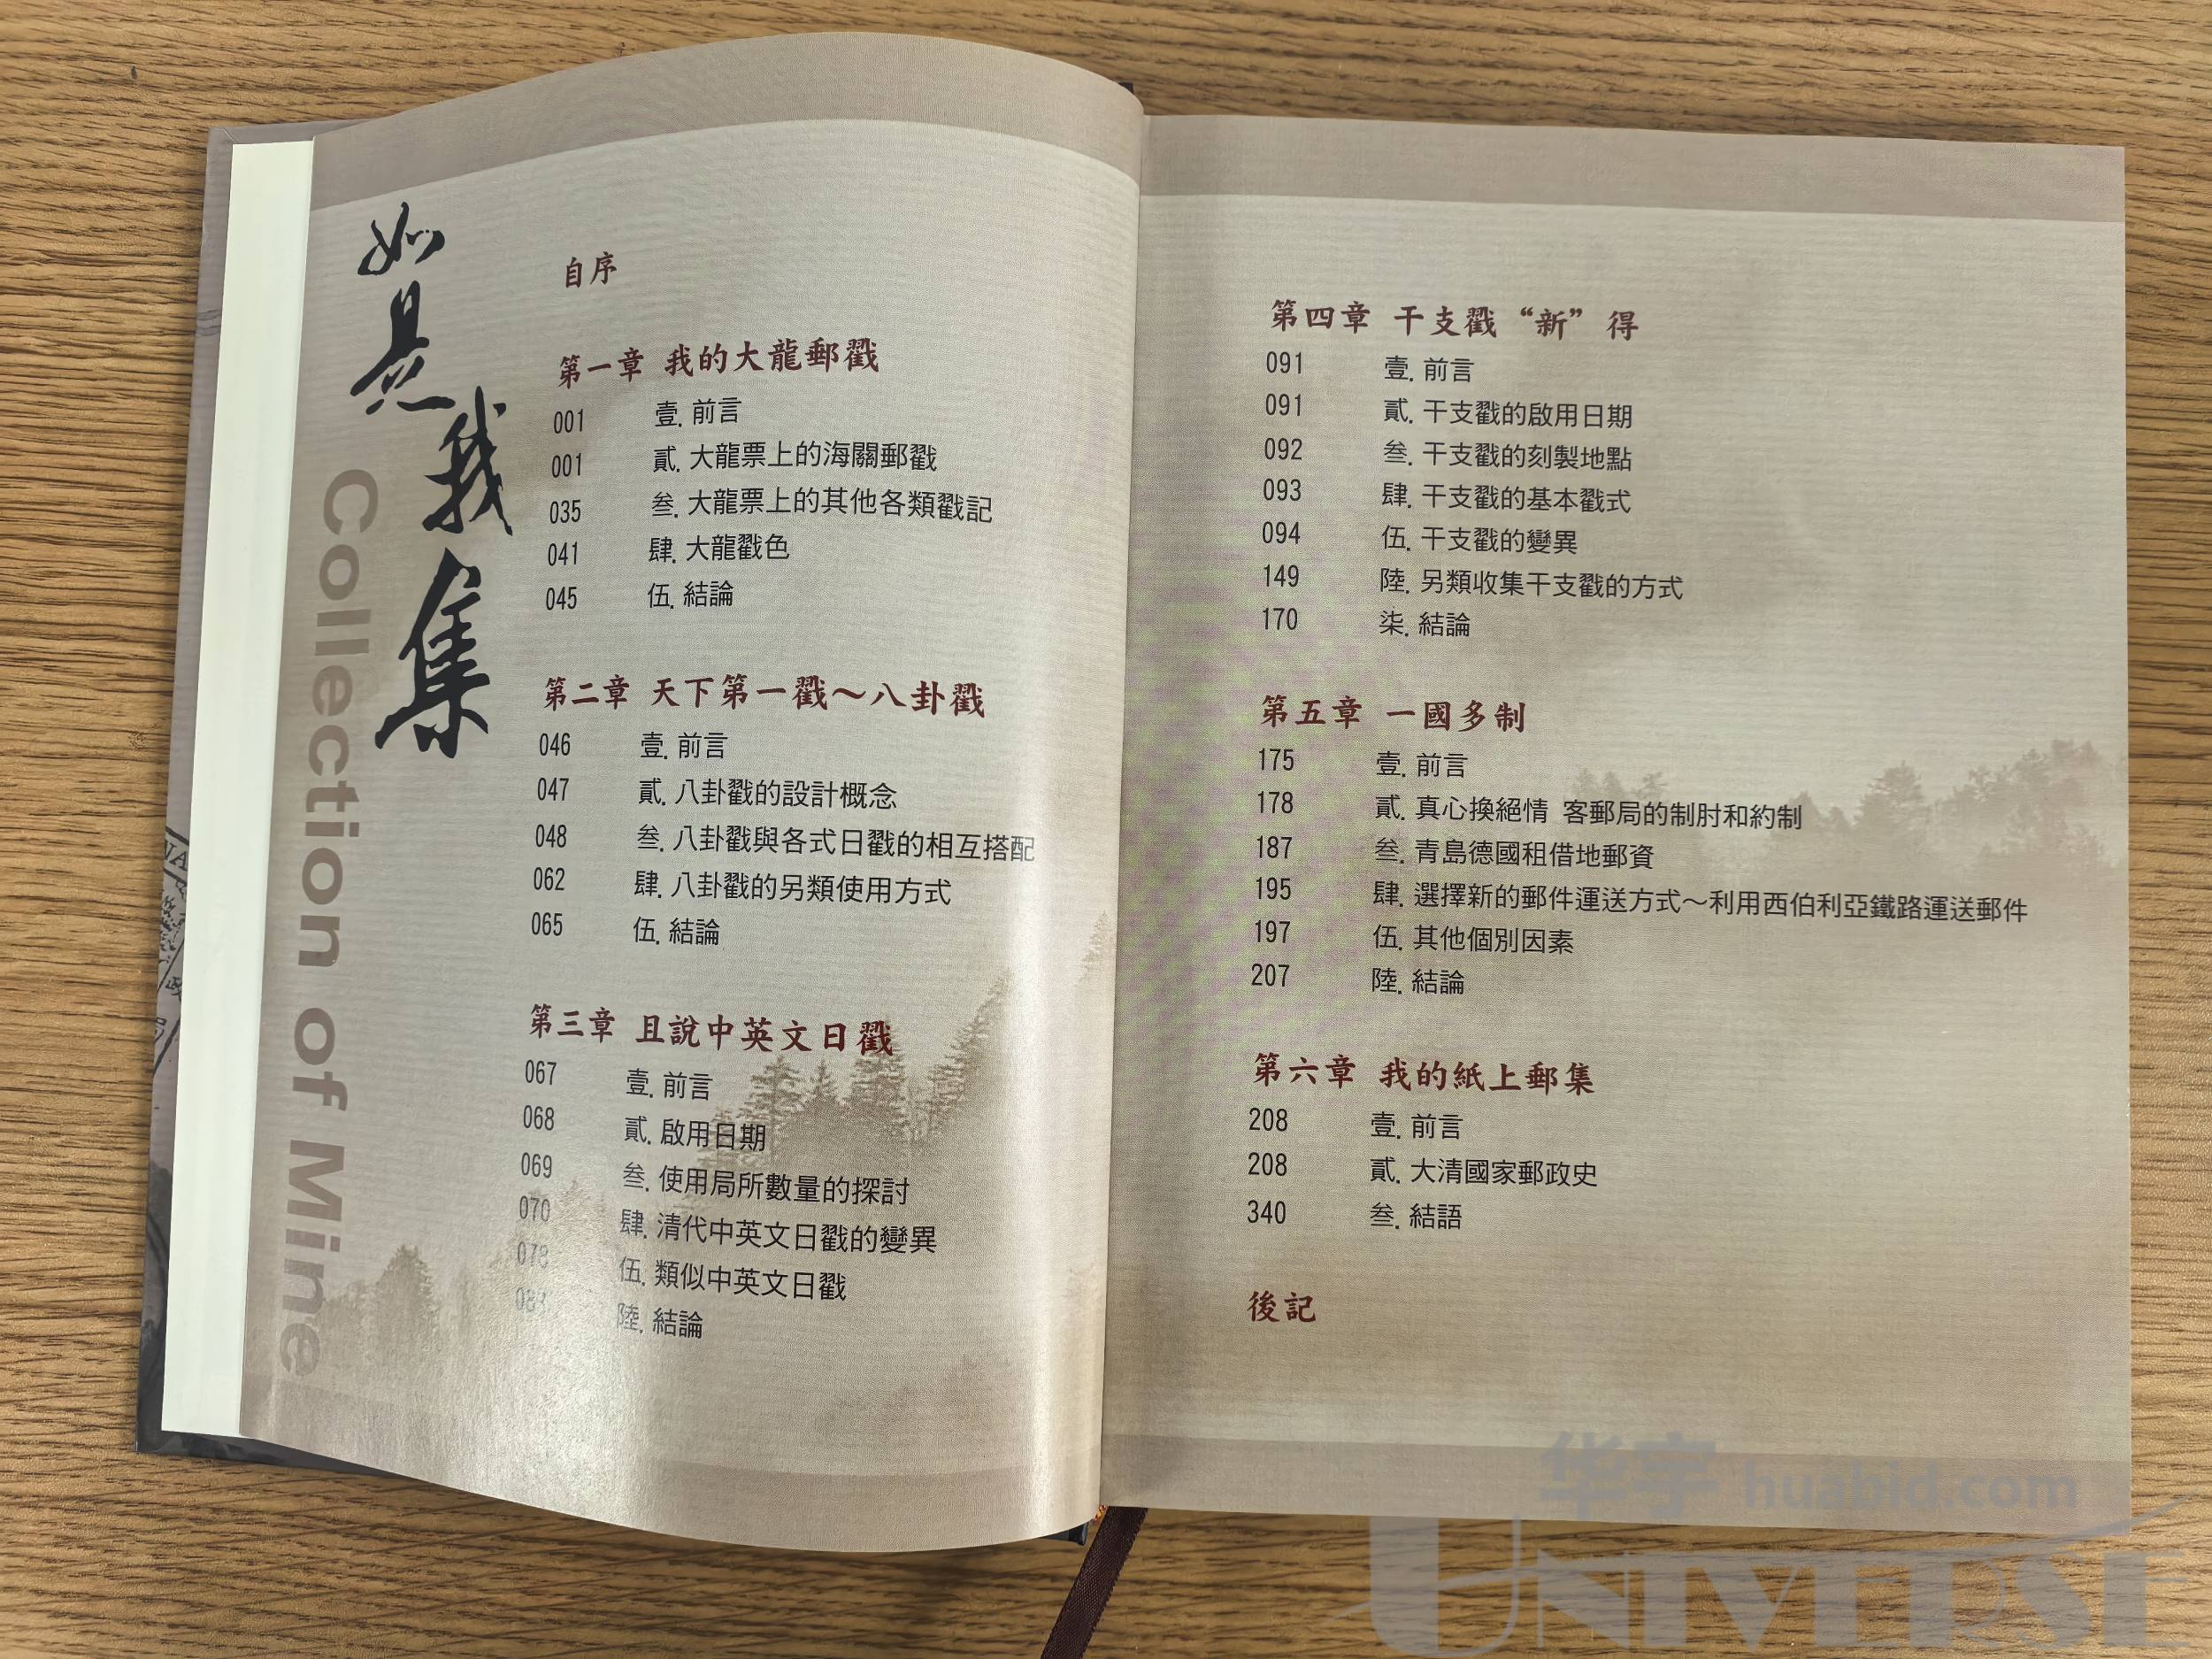 如是我集
Collection of Mine
自序
第一章 我的大龍郵戳
001 壹. 前言
001 貳. 大龍票上的海關郵戳
035 叁. 大龍票上的其他各類戳記
041 肆. 大龍戳色
045 伍. 結論
第二章 天下第一戳～八卦戳
046 壹. 前言
047 貳. 八卦戳的設計概念
048 叁. 八卦戳與各式日戳的相互搭配
062 肆. 八卦戳的另類使用方式
065 伍. 結論
第三章 且說中英文日戳
067 壹. 前言
068 貳. 啟用日期
069 叁. 使用局所數量的探討
070 肆. 清代中英文日戳的變異
078 伍. 類似中英文日戳
陸. 結論
第四章 干支戳“新”得
091 壹. 前言
091 貳. 干支戳的啟用日期
092 叁. 干支戳的刻製地點
093 肆. 干支戳的基本戳式
094 伍. 干支戳的變異
149 陸. 另類收集干支戳的方式
170 柒. 結論
第五章 一國多制
175 壹. 前言
178 貳. 真心換絕情 客郵局的制肘和約制
187 叁. 青島德國租借地郵資
195 肆. 選擇新的郵件運送方式～利用西伯利亞鐵路運送郵件
197 伍. 其他個別因素
207 陸. 結論
第六章 我的紙上郵集
208 壹. 前言
208 貳. 大清國家郵政史
340 叁. 結語
後記
华宇 huabid.com
UNIVERSE